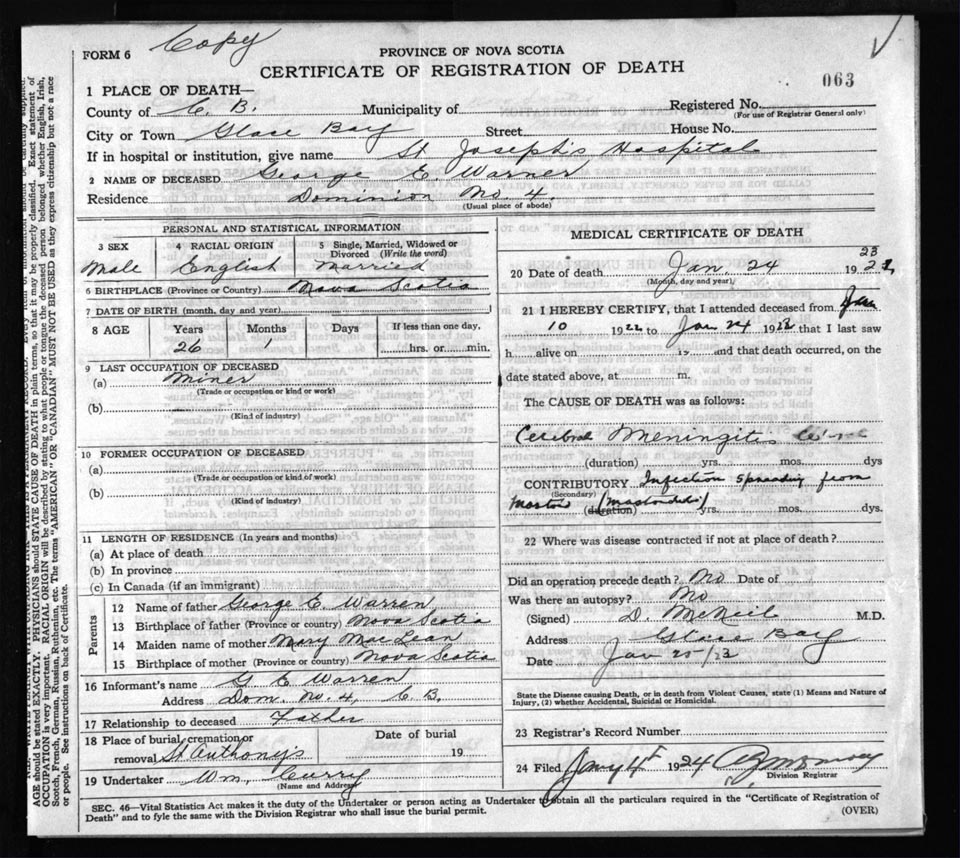 Copy
FORM 6
PROVINCE OF NOVA SCOTIA
CERTIFICATE OF REGISTRATION OF DEATH
063
1 PLACE OF DEATH—
County of C. B. Municipality of Registered No.
(For use of Registrar General only)
City or Town Glace Bay Street House No.
If in hospital or institution, give name St Joseph's Hospital
2 NAME OF DECEASED George E Warner
Residence Dominion No. 4.
(Usual place of abode)
PERSONAL AND STATISTICAL INFORMATION
3 SEX 4 RACIAL ORIGIN 5 Single, Married, Widowed or Divorced (Write the word)
Male English Married
6 BIRTHPLACE (Province or Country) Nova Scotia
7 DATE OF BIRTH (month, day and year)
8 AGE Years Months Days If less than one day,
26 1 hrs. or min.
9 LAST OCCUPATION OF DECEASED
(a) Miner
(Trade or occupation or kind or work)
(b)
(Kind of industry)
10 FORMER OCCUPATION OF DECEASED
(a)
(Trade or occupation or kind or work)
(b)
(Kind of industry)
11 LENGTH OF RESIDENCE (In years and months)
(a) At place of death
(b) In province
(c) In Canada (if an immigrant)
Parents
12 Name of father George E. Warren
13 Birthplace of father (Province or country) Nova Scotia
14 Maiden name of mother Mary MacLean
15 Birthplace of mother (Province or country) Nova Scotia
16 Informant's name G E Warren
Address Dom. No. 4, C B,
17 Relationship to deceased Father
18 Place of burial, cremation or removal St Anthony's Date of burial 19
19 Undertaker Wm, Curry
(Name and Address)
MEDICAL CERTIFICATE OF DEATH
23
20 Date of death Jan. 24 192
(Month, day and year)
21 I HEREBY CERTIFY, that I attended deceased from Jan
10 1922 to Jan 24 1922 that I last saw
h alive on 19 and that death occurred, on the
date stated above, at m.
The CAUSE OF DEATH was as follows:
Cerebral Meningitis
(duration) yrs. mos. dys
CONTRIBUTORY Infection spreading from
(Secondary)
(mastoiditis)
(duration) yrs. mos. dys.
22 Where was disease contracted if not at place of death?
Did an operation precede death? No Date of
Was there an autopsy? No
(Signed) D. McNeil M.D.
Address Glace Bay
Date Jan 25/23
State the Disease causing Death, or in death from Violent Causes, state (1) Means and Nature of
Injury, (2) whether Accidental, Suicidal or Homicidal.
23 Registrar's Record Number
24 Filed 1924
Division Registrar
SEC. 46—Vital Statistics Act makes it the duty of the Undertaker or person acting as Undertaker to obtain all the particulars required in the "Certificate of Registration of
Death" and to fyle the same with the Division Registrar who shall issue the burial permit.
(OVER)
AGE should be stated EXACTLY. PHYSICIANS should STATE CAUSE OF DEATH in plain terms, so that it may be properly classified. Exact statement of
OCCUPATION is very important. RACIAL ORIGIN will be described by stating to what people or tongue the deceased person belonged whether English, Irish,
Scotch, French, German, Russian, Ruthenian, etc. The terms "AMERICAN" OR "CANADIAN" MUST NOT BE USED as they express citizenship but not a race
or people. See instructions on back of Certificate.